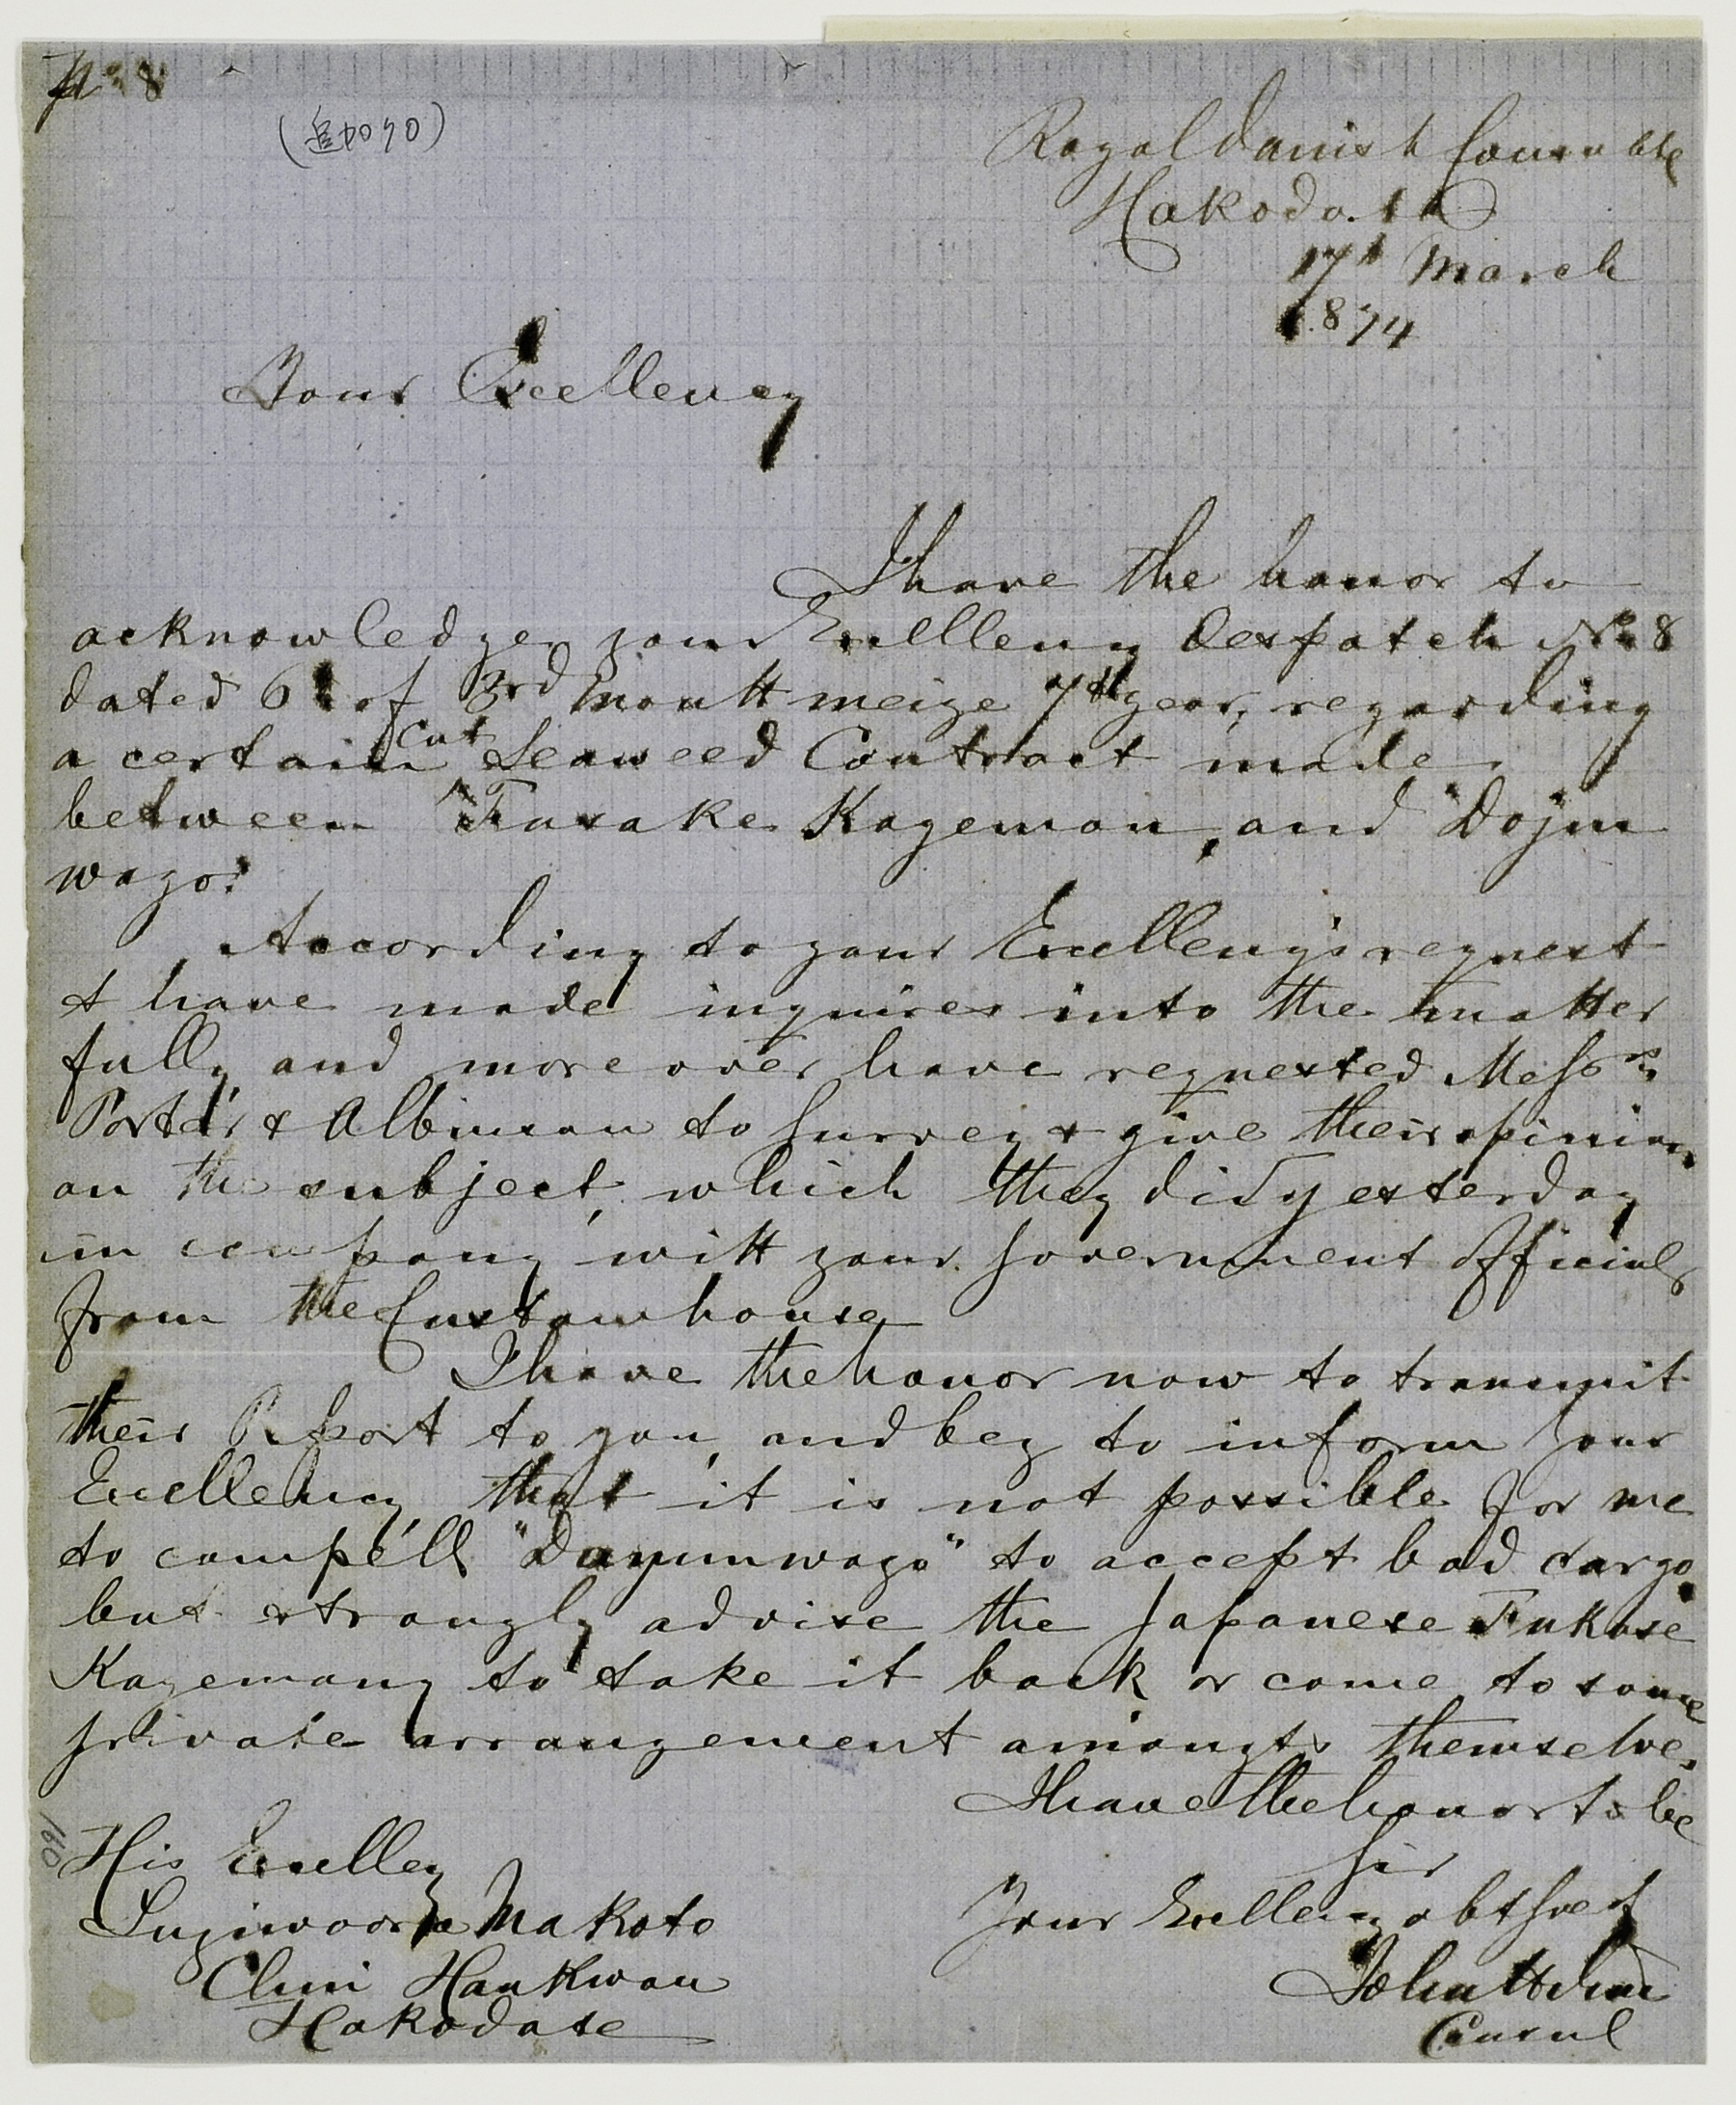 No 8
(追加90)
Royal Danish Consulate
Hakodate
17th March
1874
Your Excellency
I have the honor to
acknowledge your Excellency Despatch No 8
dated 6th of 3rd Month meige 7th year, regarding
a certain cut Seaweed Contract made
between "Fusake Kagemon, and "Dojun
wago."
According to your Excellency's request
I have made inquires into the matter
fully, and more over have requested Messrs
Porter & Albinson to Survey & give their opinion
on the subject, which they did yesterday
in company witt your Government Officials
from the Customhouse
I have the honor now to transmit
their Report to you, and beg to inform Your
Excellency, that it is not possible for me
to compell "Dayunwago" to accept bad cargo
but strongly advise the Japanese Fukase
Kagemang to take it back or come to some
private arrangement amongts themselves.
I have the honor to be
Sir
Your Excellency obt Servt
John
Consul
His Excelley
Sugiwoora Makoto
Chui Hankwan
Hakodate
160